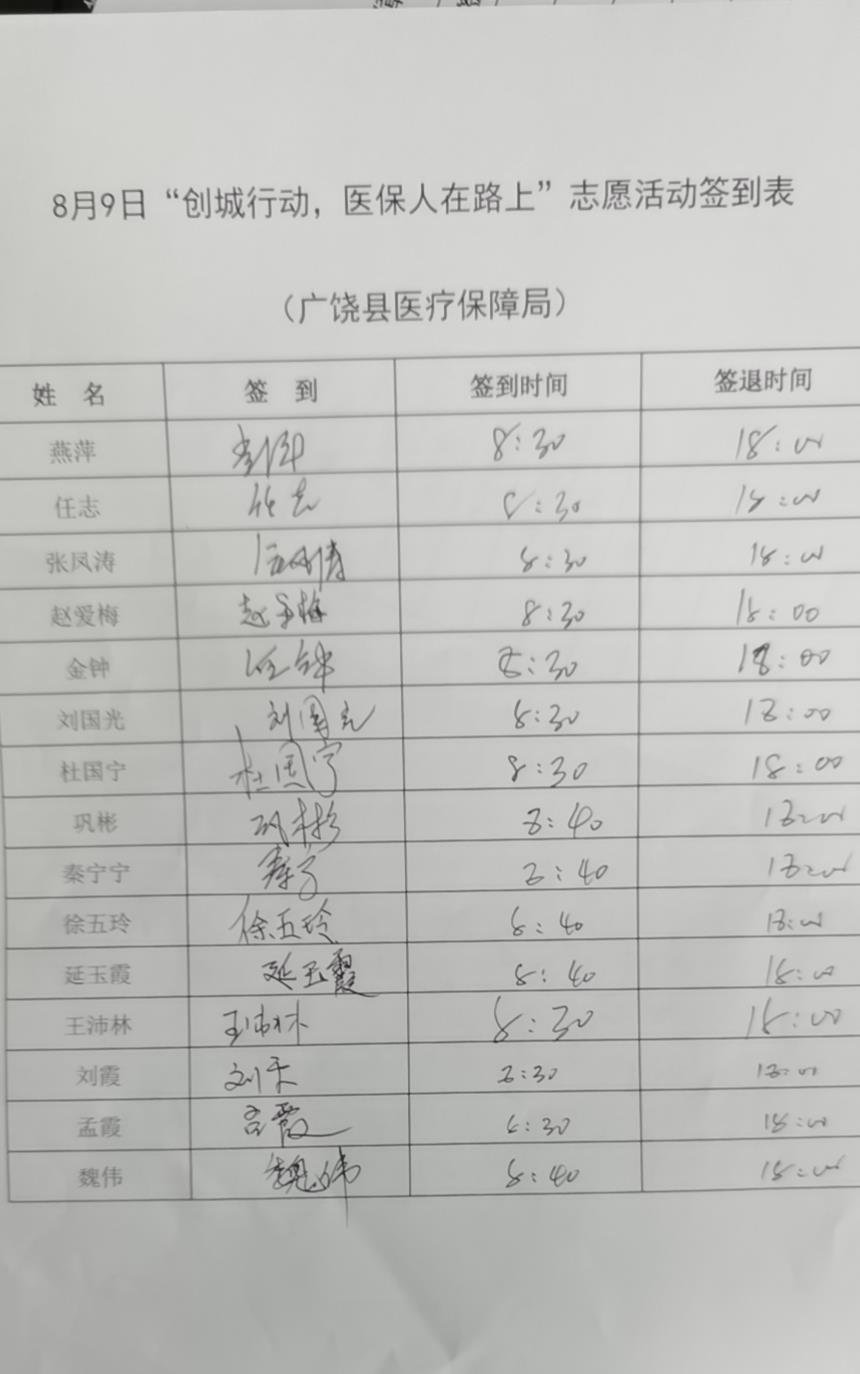 8月9日“创城行动，医保人在路上”志愿活动签到表
（广饶县医疗保障局）
姓 名 签 到 签到时间 签退时间
燕萍 8:30 18:00
任志 任志 8:30 18:00
张凤涛 8:30 18:00
赵爱梅 赵爱梅 8:30 18:00
金钟 8:30 18:00
刘国光 刘国光 8:30 18:00
杜国宁 杜国宁 8:30 18:00
巩彬 巩彬 8:40 18:00
秦宁宁 8:40 18:00
徐五玲 徐五玲 8:40 18:00
延玉霞 延玉霞 8:40 18:00
王沛林 王沛林 8:30 18:00
刘霞 8:30 18:00
孟霞 8:30 18:00
魏伟 魏伟 8:40 18:00